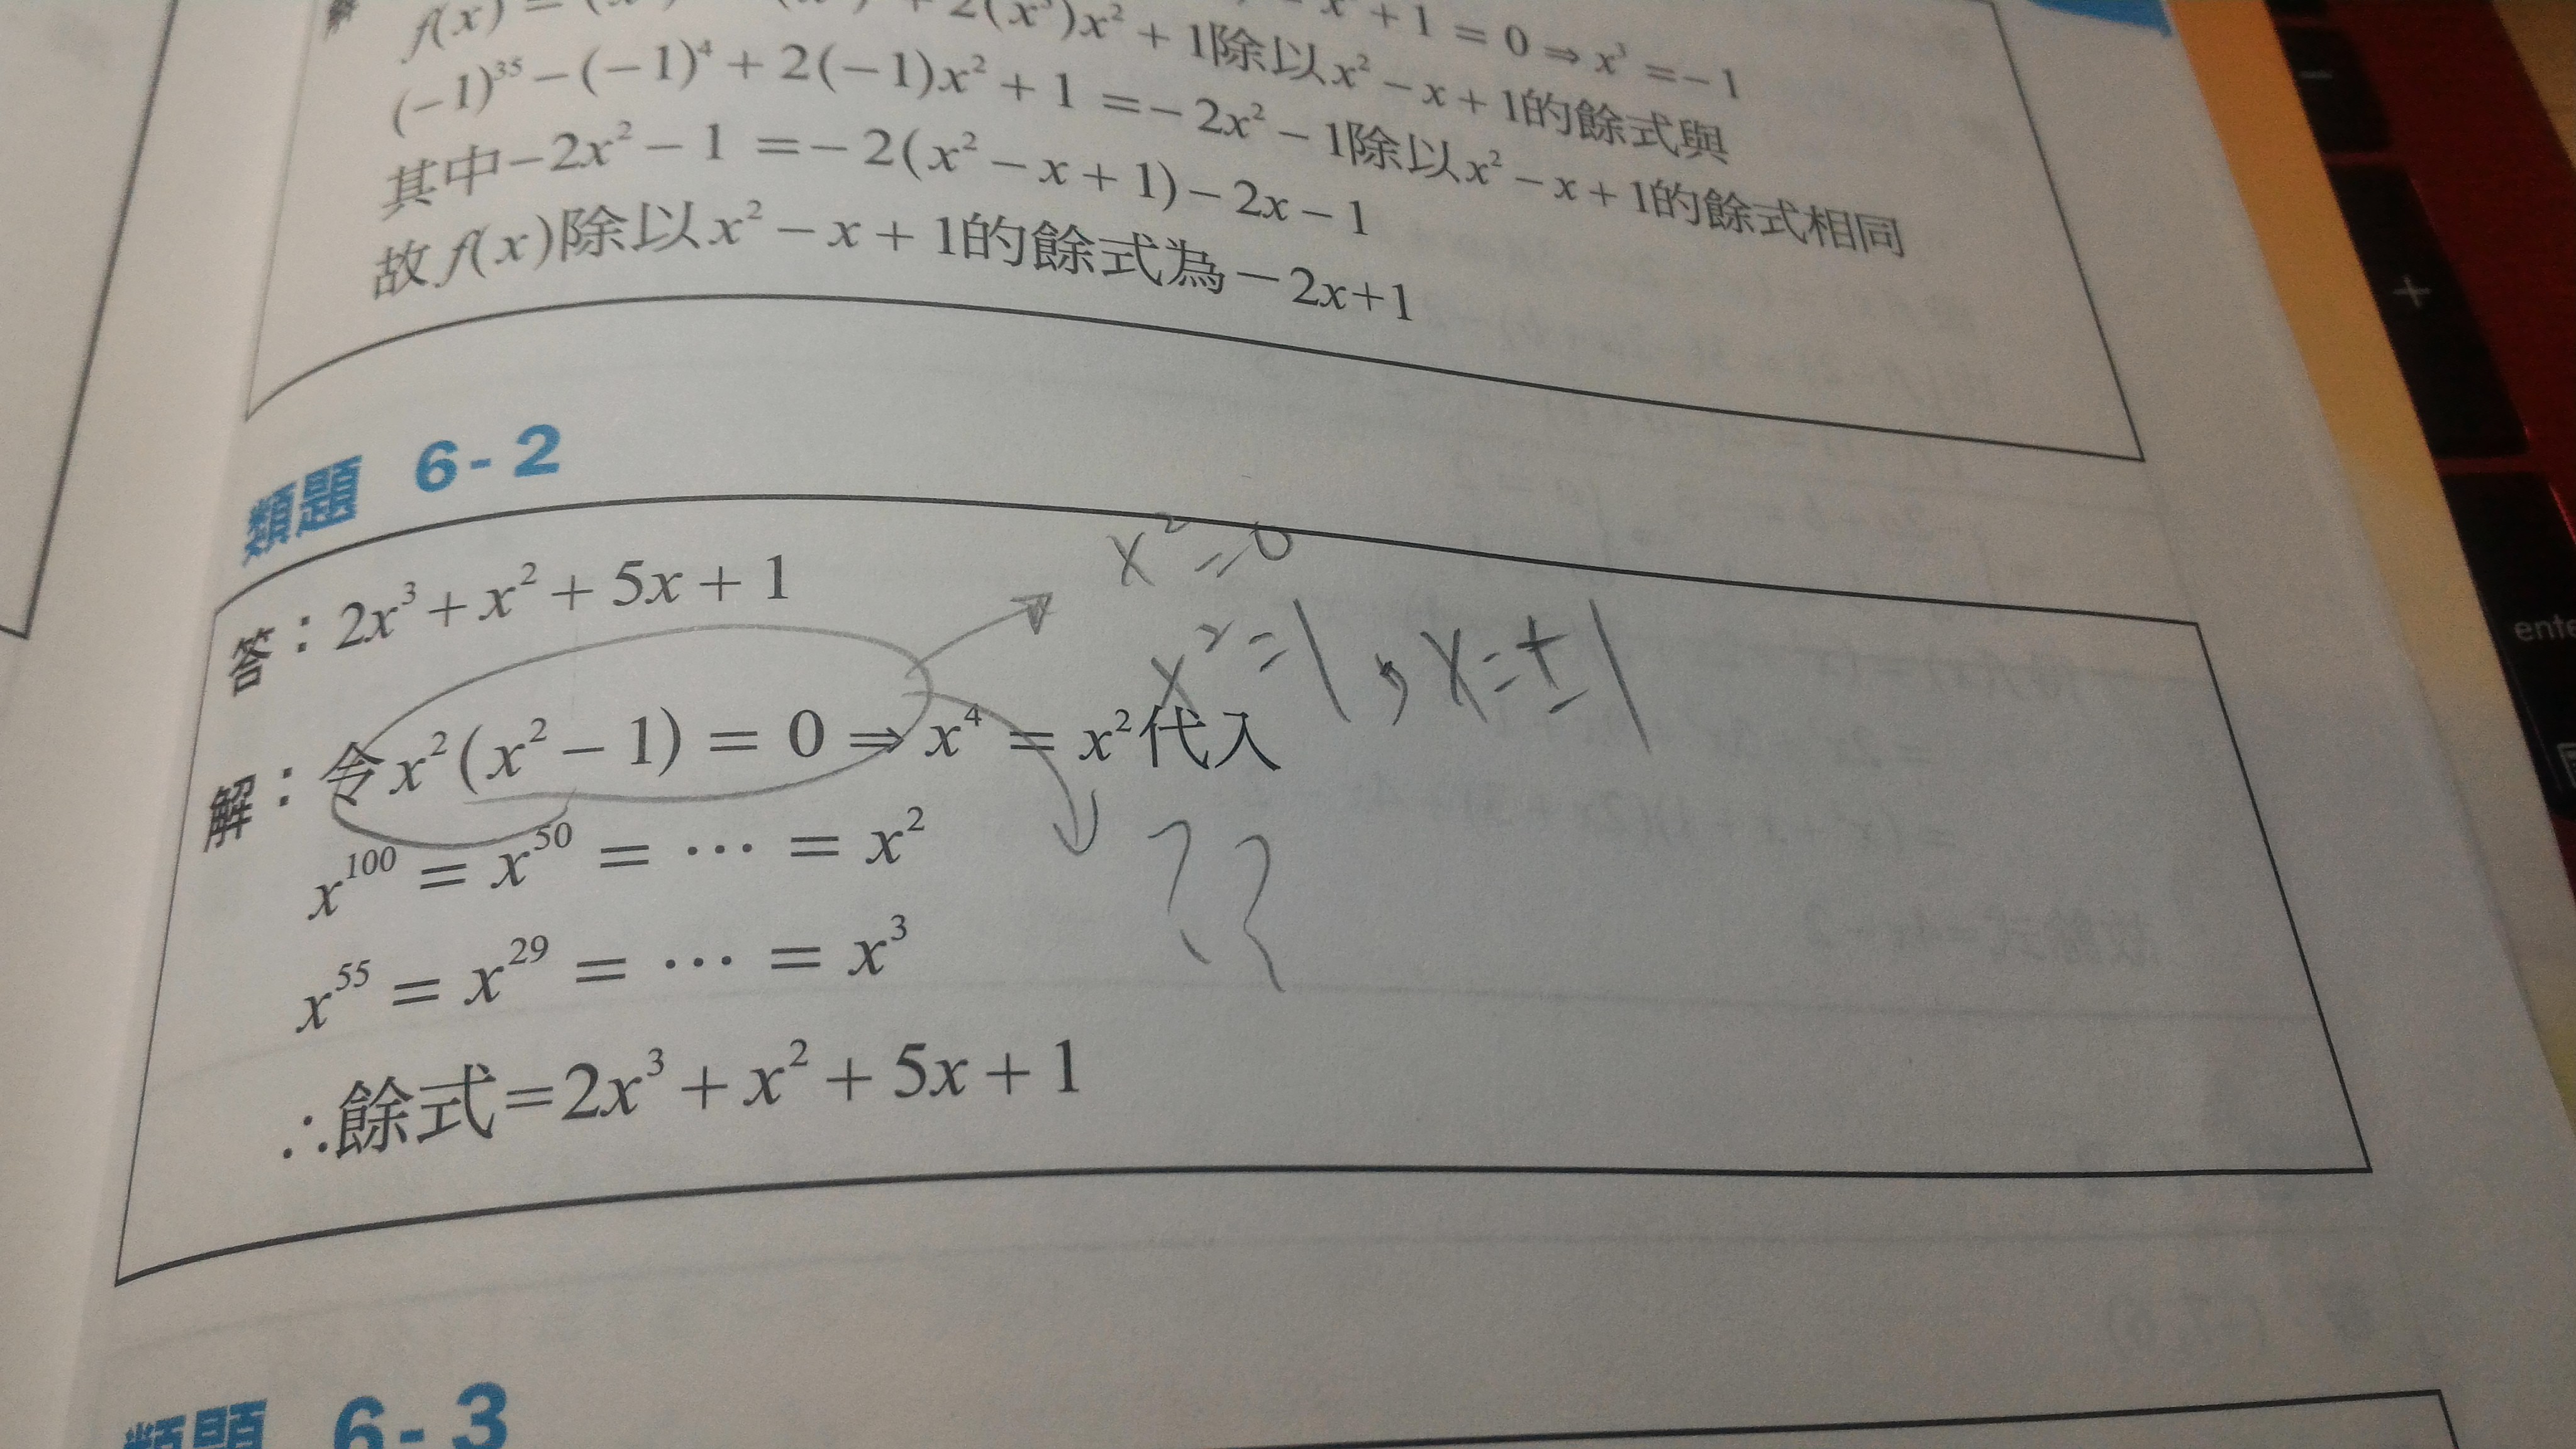 解
f(x) = (x
+ 2(x³)x² + 1除以x² − x + 1的餘式與
x + 1 = 0 ⇒ x³ = − 1
(−1)³⁵ − (−1)⁴ + 2(−1)x² + 1 = − 2x² − 1除以x² − x + 1的餘式相同
其中− 2x² − 1 = − 2(x² − x + 1) − 2x − 1
故f(x)除以x² − x + 1的餘式為 − 2x+1
類題 6-2
答：2x³ + x² + 5x + 1
x² = 0
x² = 1 , x = ± 1
解：令x²(x² − 1) = 0 ⇒ x⁴ = x²代入
x¹⁰⁰ = x⁵⁰ = ⋯ = x²
??
x⁵⁵ = x²⁹ = ⋯ = x³
∴餘式=2x³ + x² + 5x + 1
類題 6-3
+
ente